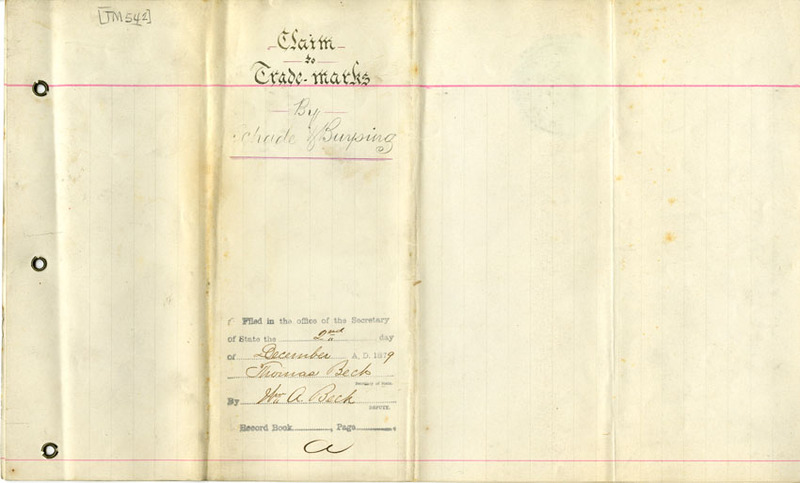 [TM 542]
Claim
to
Trade-marks
By
Schade & Buysing
Filed in the office of the Secretary
of State the 2nd day
of December A. D. 1879
Thomas Beck
Secretary of State.
By Wm A. Beck
DEPUTY.
Record Book , Page
a